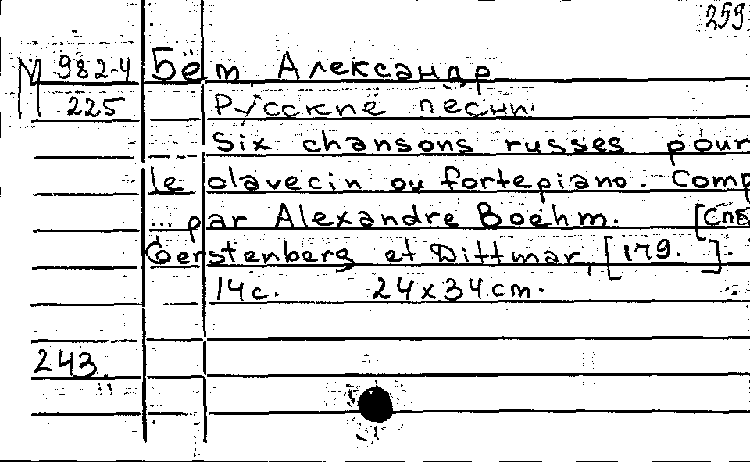 259
М 982-4 Бём, Александр
225 Русские песни
Six chansons russes pour
le clavecin ou fortepiano. Comp
... par Alexandre Boehm. [Спб
Gerstenberg et Dittmar, [179. ].
14с. 24x34 cm.
243.